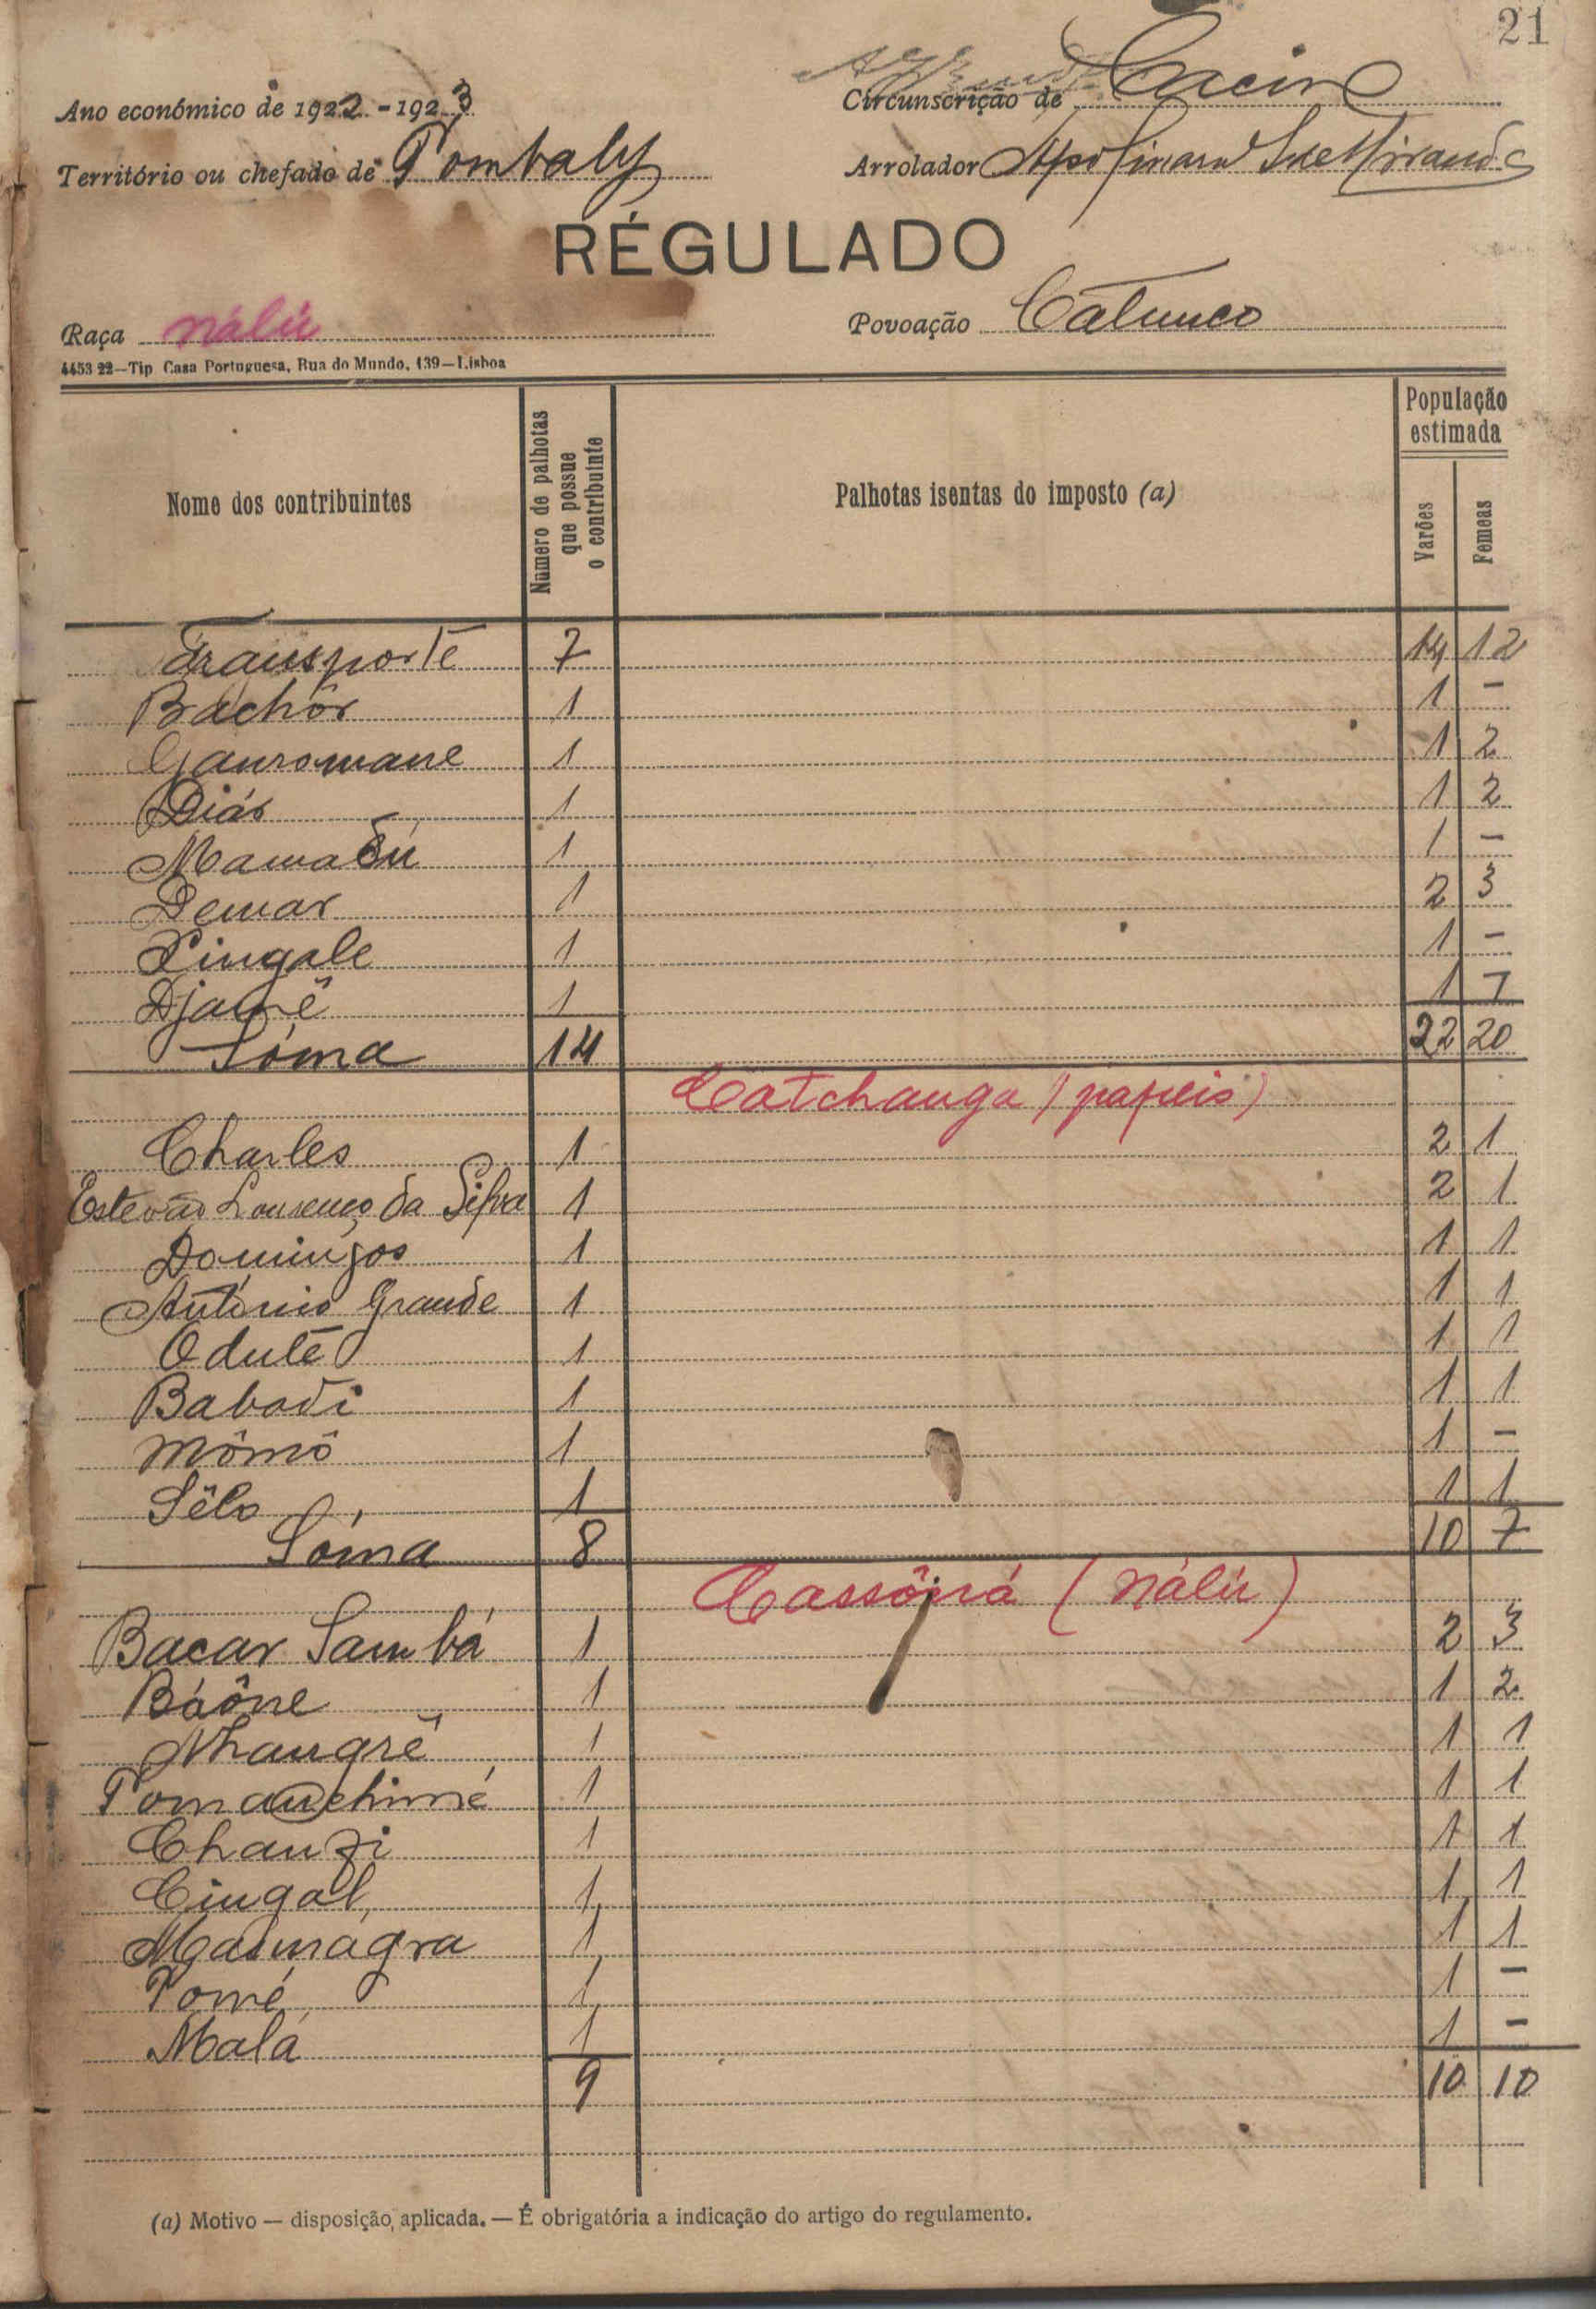 21
Ano económico de 1922-1923
Circunscrição de Cacine
Território ou chefado de Tombaly
Arrolador
RÉGULADO
Raça Nálú
Povoação Catunco
4453 22—Tip Casa Portuguesa, Rua do Mundo, 139—Lisboa
Nome dos contribuintes
Número de palhotas
que possue
o contribuinte
Palhotas isentas do imposto (a)
População
estimada
Varões
Femeas
Transporte 7 14 12
Bachôr 1 1 -
Gauromane 1 1 2
Diás 1 1 2
Mamadú 1 1 -
Demar 1 2 3
Pingale 1 1 -
Djamê 1 1 1
Sóma 14 22 20
Catchanga (papeis)
Charles 1 2 1
Estevão Lourenço da Silva 1 2 1
Domingos 1 1 1
António Grande 1 1 1
Oduté 1 1 1
Babadi 1 1 1
Mômô 1 1 -
Sêlo 1 1 1
Sóma 8 10 7
Cassôná (Nálú)
Bacar Sambá 1 2 3
Báône 1 1 2
Nhangrê 1 1 1
1 1 1
Chanzi 1 1 1
Cingal 1 1 1
Masmagra 1 1 1
Tomé 1 1 -
Malá 1 1 -
9 10 10
(a) Motivo — disposição, aplicada. — É obrigatória a indicação do artigo do regulamento.